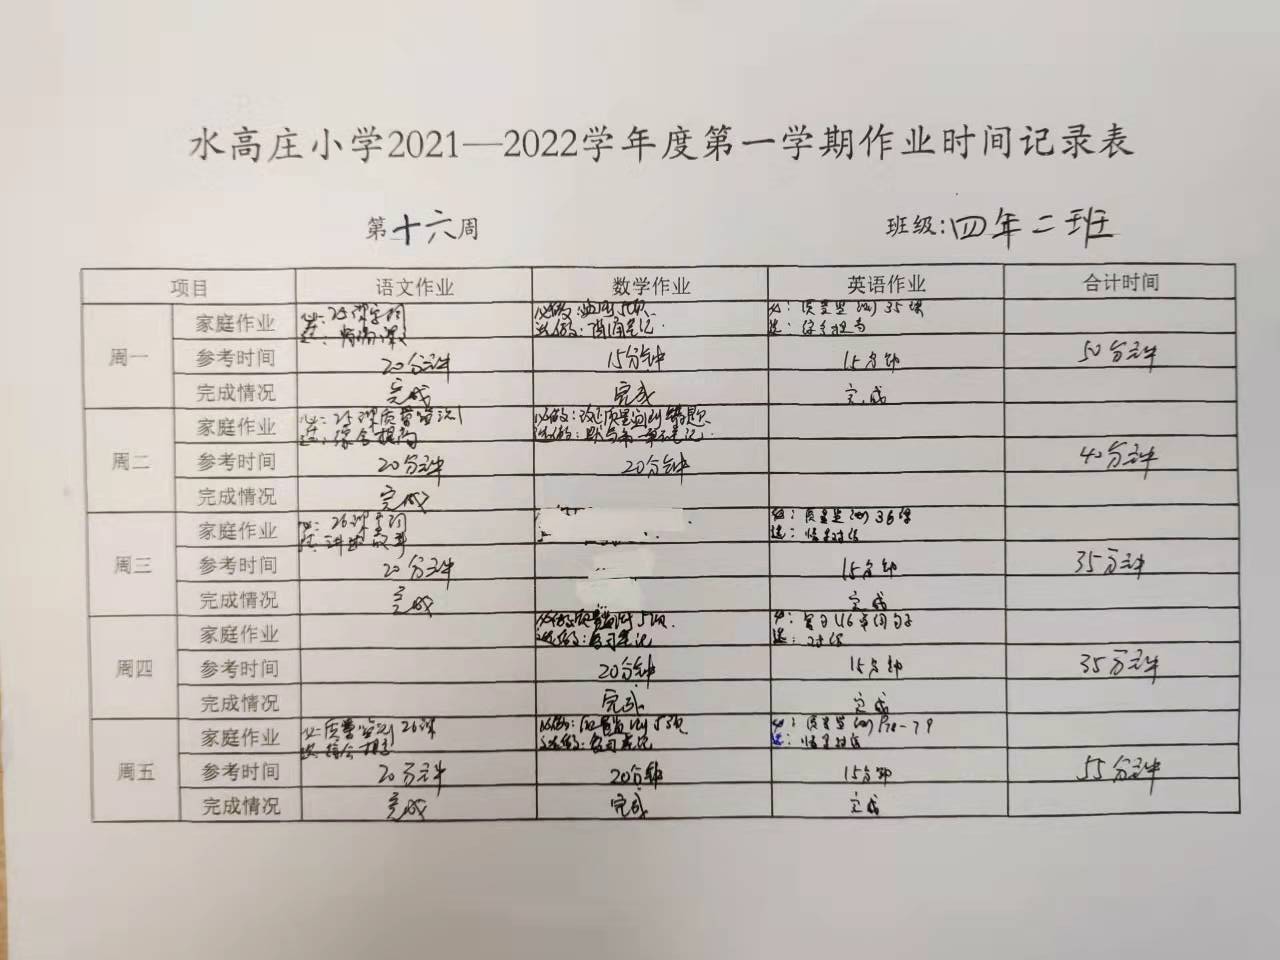 水高庄小学2021—2022学年度第一学期作业时间记录表
第十六周 班级:四年二班
项目 语文作业 数学作业 英语作业 合计时间
周一
家庭作业
必: 25课字词 选:
必做: 5项. 选做: 笔记.
必: 质量监测35课 选: 综合提高
参考时间 20分钟 15分钟 15分钟 50分钟
完成情况 完成 完成 完成
周二
家庭作业
必: 25课质量监测 选: 综合提高
必做: 改质量监测错题. 选做: 默写第一单元笔记.
参考时间 20分钟 20分钟 40分钟
完成情况 完成
周三
家庭作业
必: 26课字词 选: 讲故事
必: 质量监测36课 选:
参考时间 20分钟 15分钟 35分钟
完成情况 完成 完成
周四
家庭作业
必做: 质量监测5项. 选做: 复习笔记
必: 复习U6单词句子 选: 对话
参考时间 20分钟 15分钟 35分钟
完成情况 完成. 完成
周五
家庭作业
必: 质量监测26课 选: 综合提高
必做: 质量监测5项 选做: 复习笔记
必: 质量监测P78-79 选:
参考时间 20分钟 20分钟 15分钟 55分钟
完成情况 完成 完成 完成